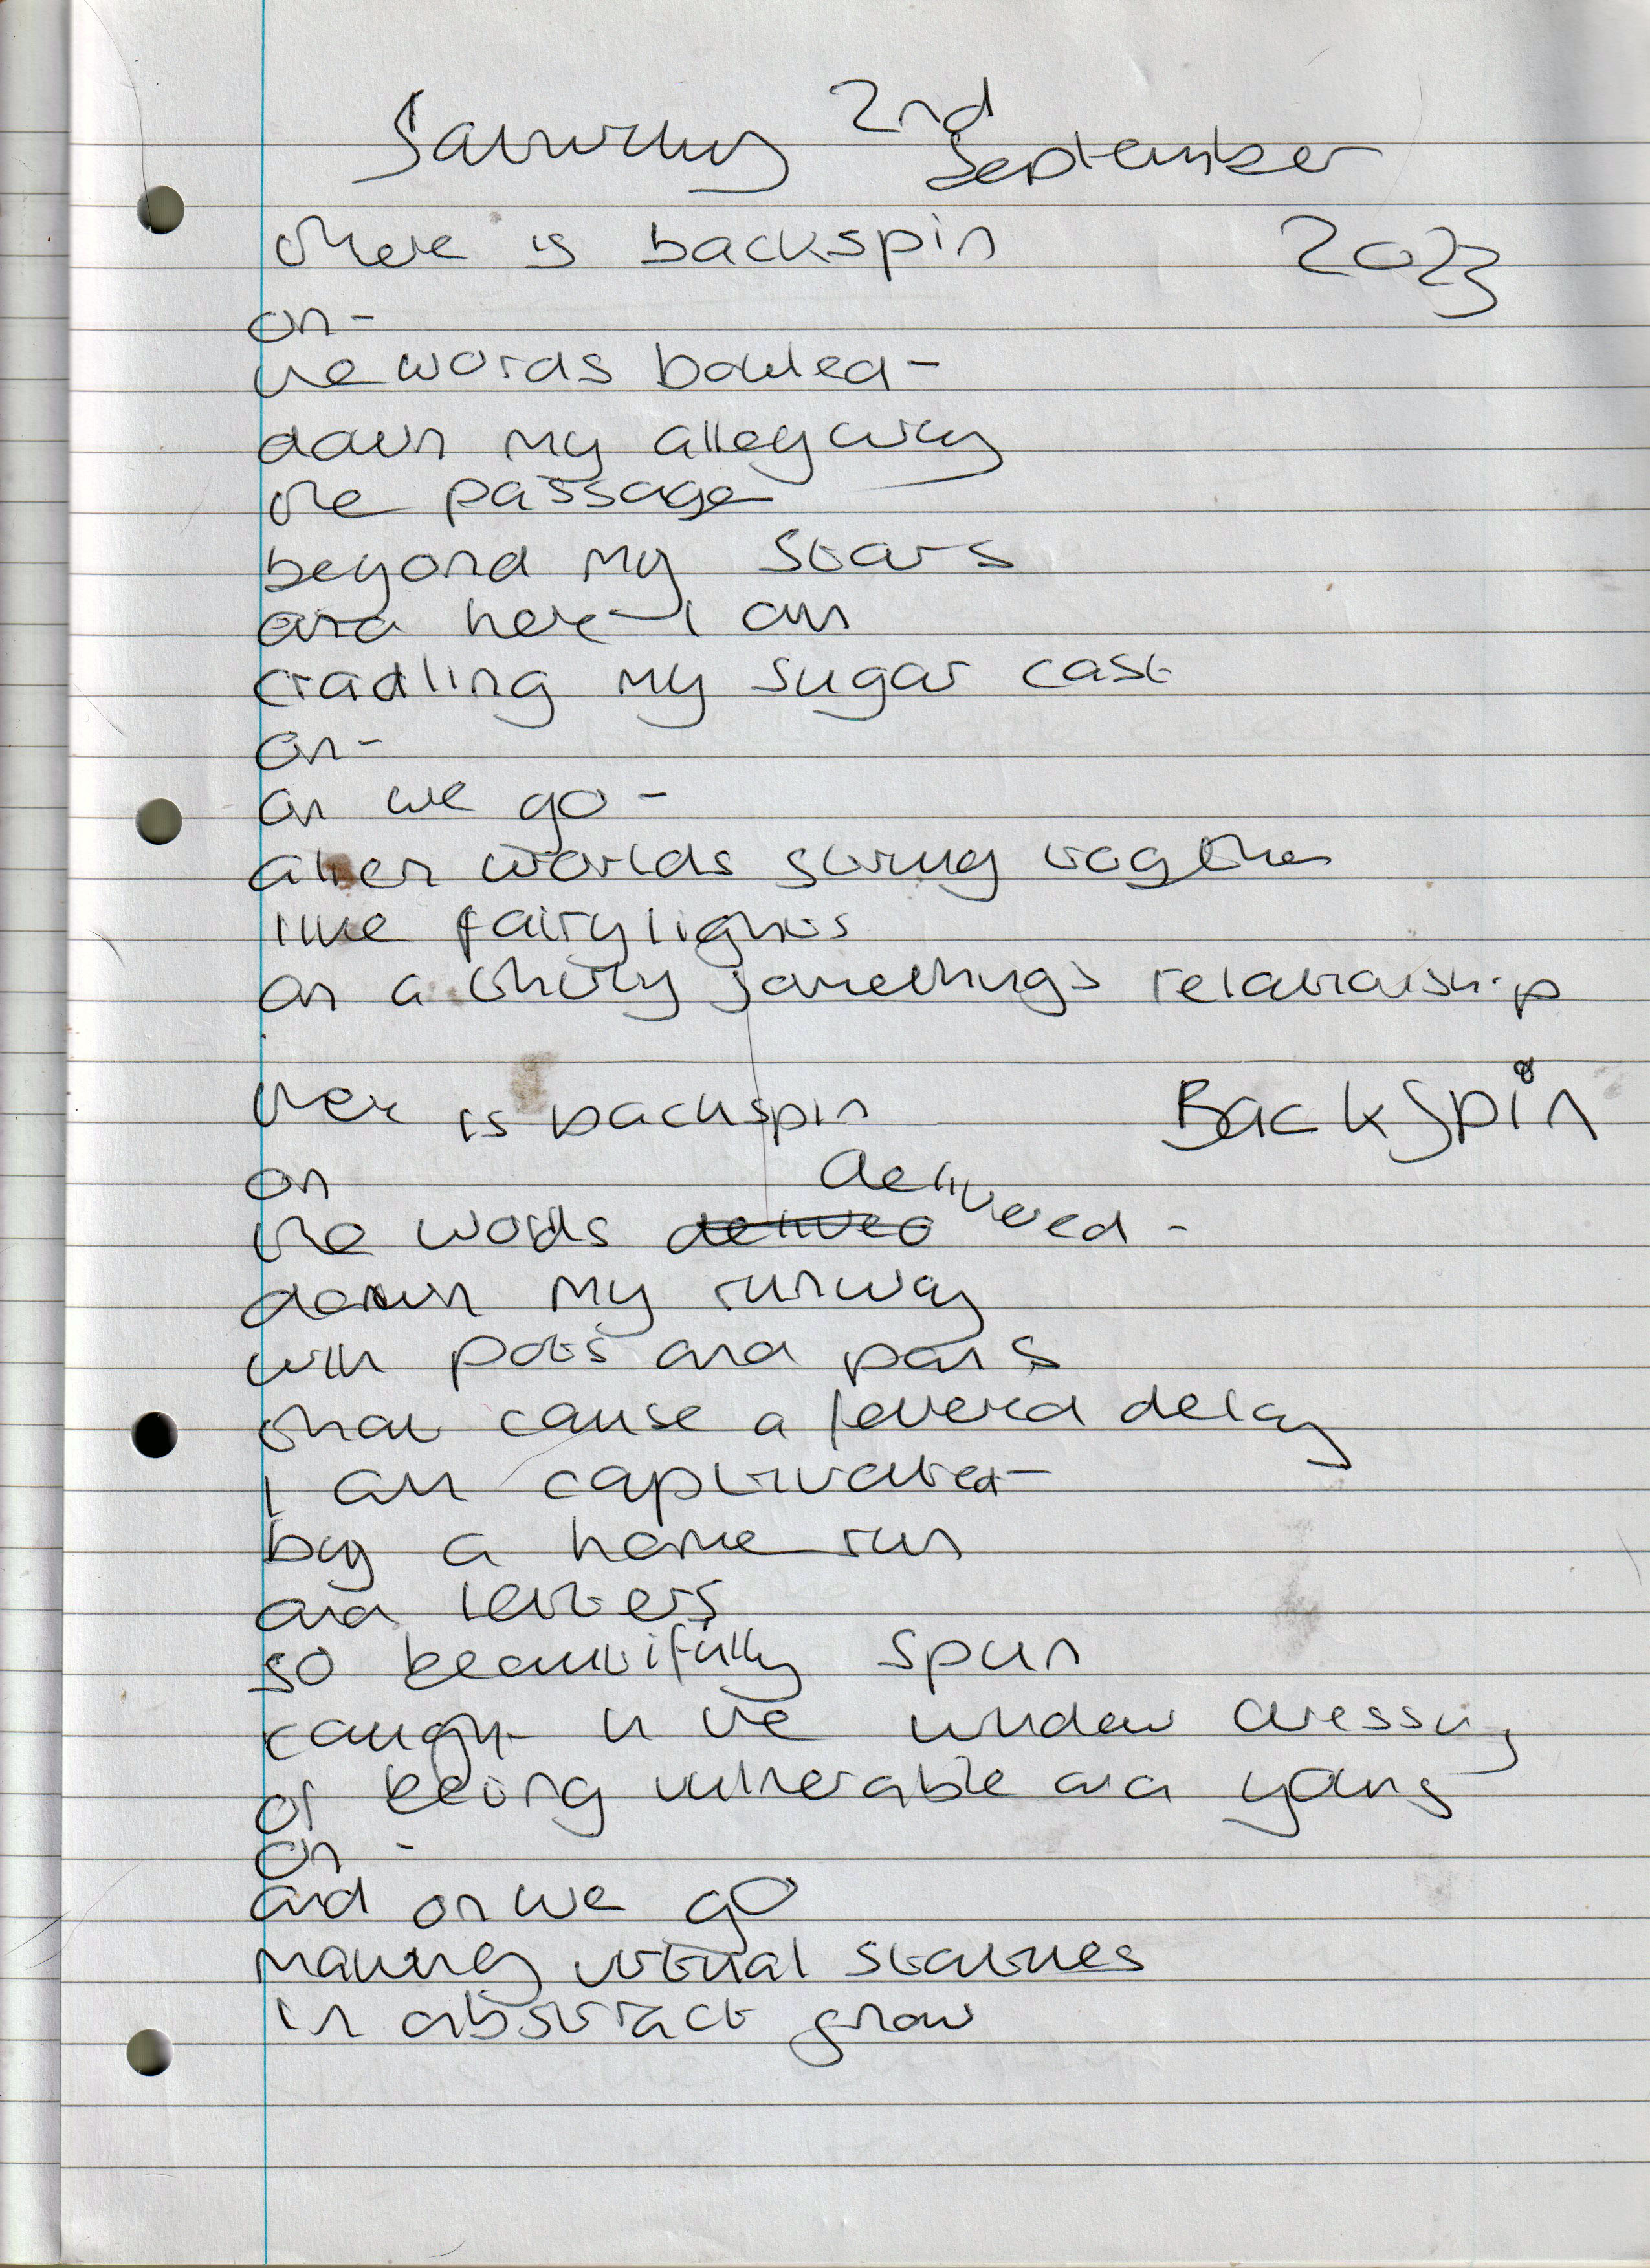 Saturday 2nd September
there is backspin 2023
on-
the words bowled-
down my alleyway
the passage
beyond my stars
and here I am
cradling my sugar cast
on-
on we go-
alien worlds strung together
like fairylights
on a thirty somethings relationship
there is backspin Backspin
on
the words delivered-
down my runway
with pots and pans
that cause a fevered delay
I am captivated-
by a home run
and letters
so beautifully spun
caught in the window dressing
of being vulnerable and young
on -
and on we go
making virtual statues
in abstract grow